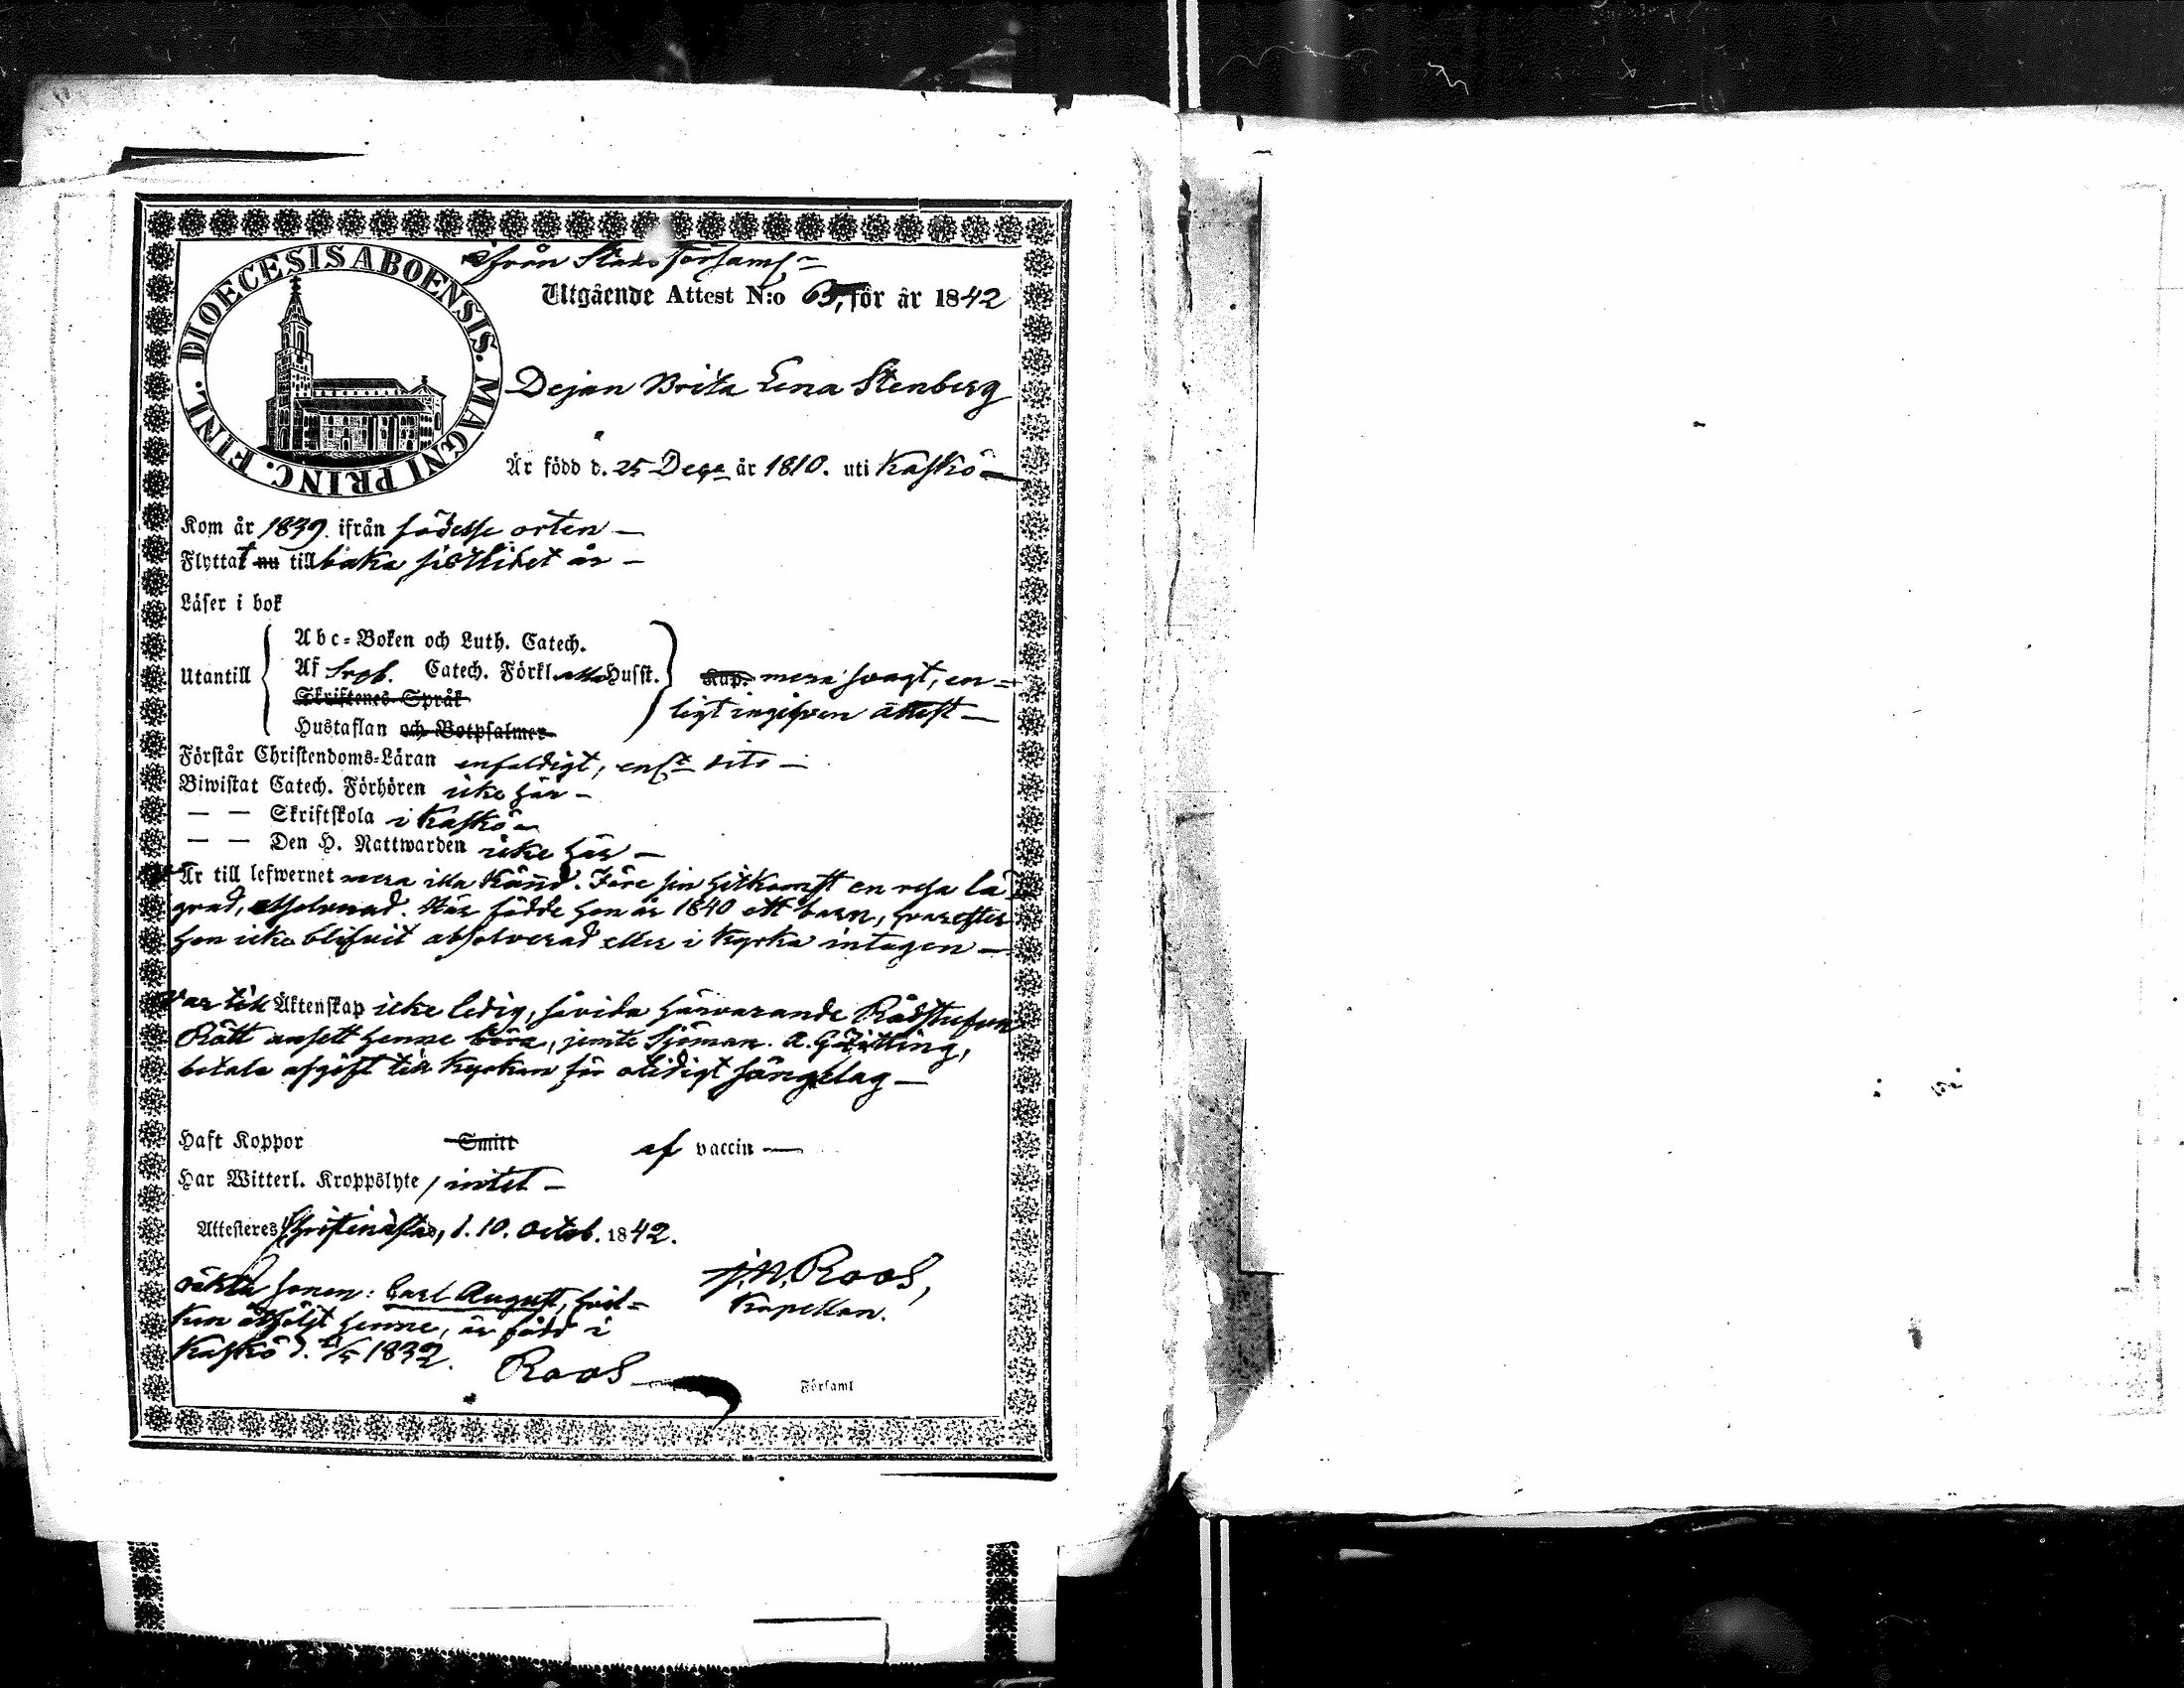 DIOECESIS ABOENSIS. MAGNI PRINC. FINL.
ifrån Stads församl:
Utgående Attest N:o 65, för år 1842
Dejan Brita Lena Stenberg
Är född d. 25 Dec. år 1810. uti Kaskö —
Kom år 1839. ifrån födelse orten —
Flyttat nu tillbaka sistlidet år —
Läser i bok
Utantill
Abc-Boken och Luth. Catech.
Af Catech. Förkl. Husst.
Skriftenes Språk
Hustaflan och Botpsalmer
Kap. mera svagt, en-
ligt ingifven attest —
Förstår Christendoms-Läran enfaldigt, enl. dito —
Biwistat Catech. Förhören icke här —
— — Skriftskola i Kaskö —
— — Den H. Nattwarden icke här —
Är till lefwernet mera illa känd. Före sin hitkomst en resa lä-
grad, absolverad. Här födde hon år 1840 ett barn, hvarefter
hon icke blifvit absolverad eller i kyrka intagen —
Var till Äktenskap icke ledig, såvida härvarande Rådstufvu
Rätt ansett henne böra, jemte Sjöman. A.
betala afgift till kyrkan för otidigt sängelag —
Haft Koppor Smitt af vaccin —
Har Witterl. Kroppslyte, intet —
Attesteres Christinästad, d. 10. Octob. 1842.
J. N. Roos,
Kapellan.
oäkta sonen: Carl August, hvil-
ken åtföljt henne, är född i
Kaskö d. 1832.
Roos
Församl